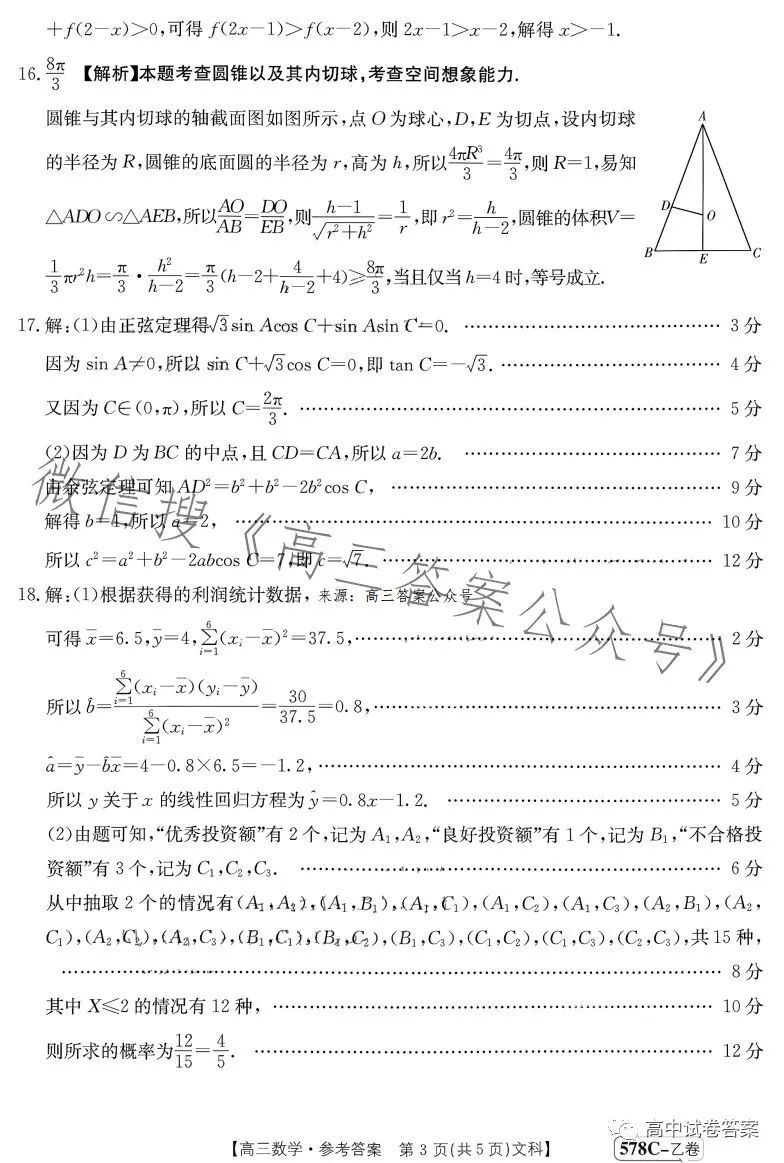 +f(2-x)>0,可得 f(2x-1)>f(x-2),则 2x-1>x-2,解得 x>-1.
16. 8π/3 【解析】本题考查圆锥以及其内切球,考查空间想象能力.
圆锥与其内切球的轴截面图如图所示,点 O 为球心,D,E 为切点,设内切球
的半径为 R,圆锥的底面圆的半径为 r,高为 h,所以 4πR³/3=4π/3,则 R=1,易知
△ADO∽△AEB,所以 AO/AB=DO/EB,则 (h-1)/√(r²+h²)=1/r,即 r²=h/(h-2),圆锥的体积V=
1/3 πr²h=π/3·h²/(h-2)=π/3(h-2+4/(h-2)+4)≥8π/3,当且仅当 h=4 时,等号成立.
A
D
O
B
E
C
17. 解:(1)由正弦定理得√3 sin Acos C+sin Asin C=0. …… 3 分
因为 sin A≠0,所以 sin C+√3 cos C=0,即 tan C=-√3. …… 4 分
又因为 C∈(0,π),所以 C=2π/3. …… 5 分
(2)因为 D 为 BC 的中点,且 CD=CA,所以 a=2b. …… 7 分
由余弦定理可知 AD²=b²+b²-2b²cos C, …… 9 分
解得 b=1,所以 a=2, …… 10 分
所以 c²=a²+b²-2abcos C=7,即 c=√7. …… 12 分
18. 解:(1)根据获得的利润统计数据, 来源: 高三答案公众号
可得 x̄=6.5,ȳ=4,∑(i=1→6)(xᵢ-x̄)²=37.5, …… 2 分
所以 b̂=∑(i=1→6)(xᵢ-x̄)(yᵢ-ȳ)/∑(i=1→6)(xᵢ-x̄)²=30/37.5=0.8, …… 3 分
â=ȳ-b̂x̄=4-0.8×6.5=-1.2, …… 4 分
所以 y 关于 x 的线性回归方程为 ŷ=0.8x-1.2. …… 5 分
(2)由题可知,“优秀投资额”有 2 个,记为 A₁,A₂,“良好投资额”有 1 个,记为 B₁,“不合格投
资额”有 3 个,记为 C₁,C₂,C₃. …… 6 分
从中抽取 2 个的情况有(A₁,A₂),(A₁,B₁),(A₁,C₁),(A₁,C₂),(A₁,C₃),(A₂,B₁),(A₂,
C₁),(A₂,C₂),(A₂,C₃),(B₁,C₁),(B₁,C₂),(B₁,C₃),(C₁,C₂),(C₁,C₃),(C₂,C₃),共 15 种,
…… 8 分
其中 X≤2 的情况有 12 种, …… 10 分
则所求的概率为 12/15=4/5. …… 12 分
微信搜《高三答案公众号》
高中试卷答案
【高三数学·参考答案 第 3 页(共 5 页)文科】
578C-乙卷